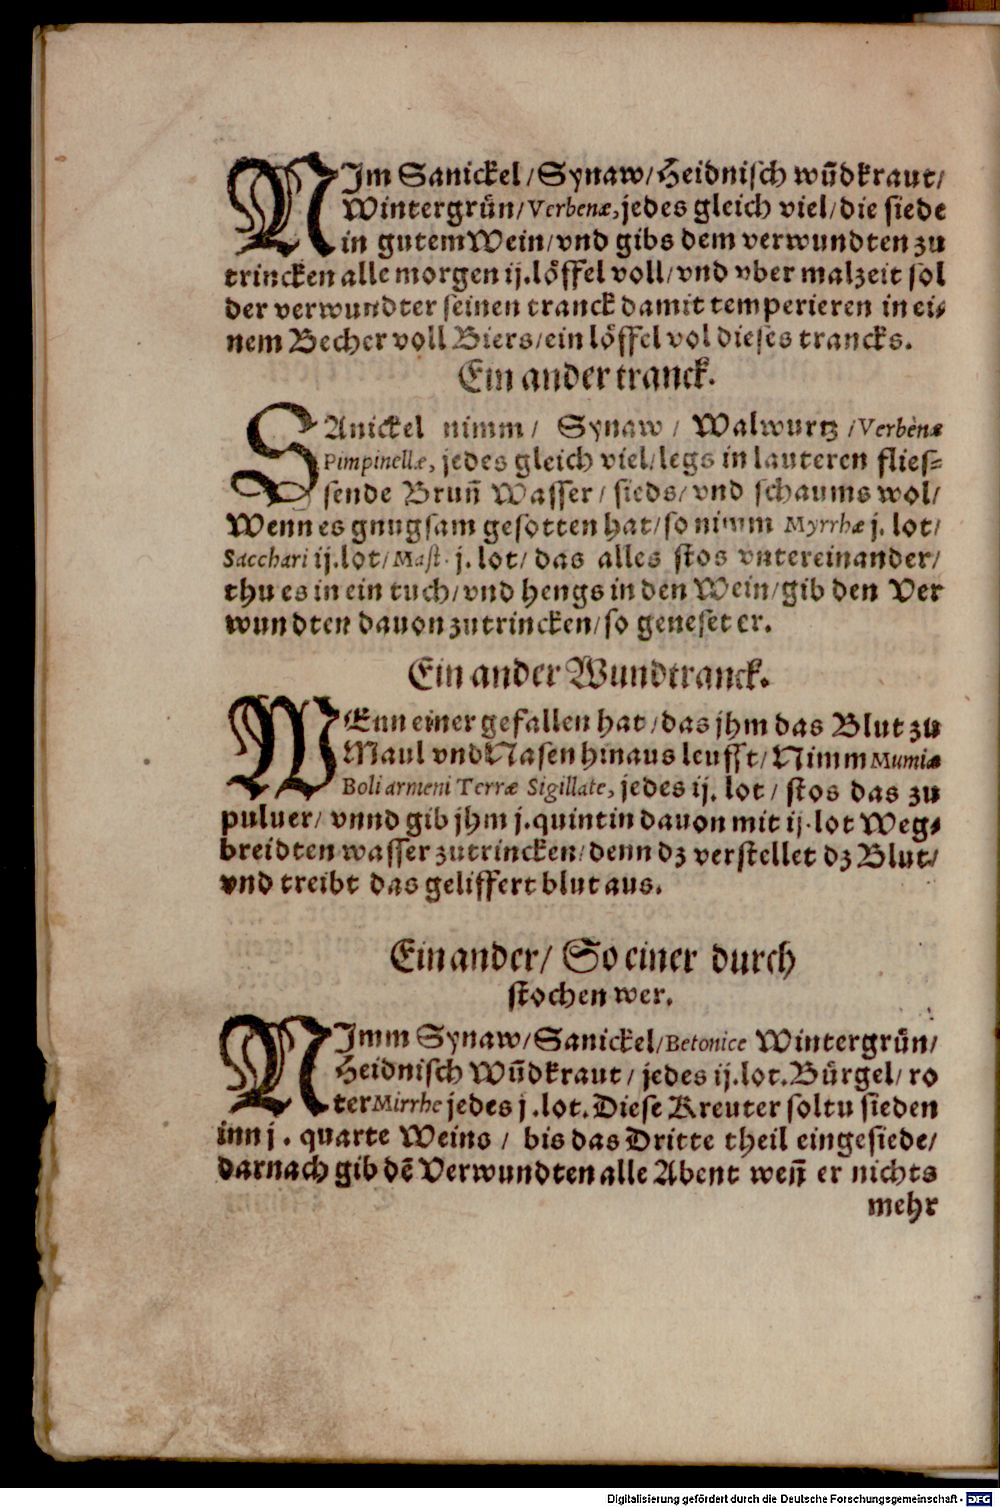 NIm Sanickel/Synaw/Heidnisch wūdkraut/
Wintergrün/Verbenæ, jedes gleich viel/die siede
in gutem Wein/vnd gibs dem verwundten zu
trincken alle morgen ij. löffel voll/vnd vber malzeit sol
der verwundter seinen tranck damit temperieren in ei-
nem Becher voll Biers/ein löffel vol dieses trancks.
Ein ander tranck.
SAnickel nimm/ Synaw / Walwurtz /Verbenæ
Pimpinellæ, jedes gleich viel/legs in lauteren flies-
sende Brun̄ Wasser/ sieds/ vnd schaums wol/
Wenn es gnugsam gesotten hat/so nimm Myrrhæ j. lot/
Sacchari ij. lot/Mast. j. lot/ das alles stos vntereinander/
thu es in ein tuch/vnd hengs in den Wein/gib den Ver
wundten dauon zutrincken/so geneset er.
Ein ander Wundtranck.
WEnn einer gefallen hat/das jhm das Blut zu
Maul vnd Nasen hinaus leufft/Nimm Mumiæ
Boli armeni Terræ Sigillate, jedes ij. lot/ stos das zu
puluer/ vnnd gib jhm j. quintin dauon mit ij. lot Weg-
breidten wasser zutrincken/denn dz verstellet dz Blut/
vnd treibt das geliffert blut aus.
Ein ander/ So einer durch
stochen wer.
NImm Synaw/Sanickel/Betonice Wintergrün/
Heidnisch Wūdkraut/ jedes ij. lot. Bürgel/ ro
ter Mirrhe jedes j. lot. Diese Kreuter soltu sieden
inn j. quarte Weins / bis das Dritte theil eingesiede/
darnach gib dē Verwundten alle Abent wen̄ er nichts
mehr
Digitalisierung gefördert durch die Deutsche Forschungsgemeinschaft - DFG